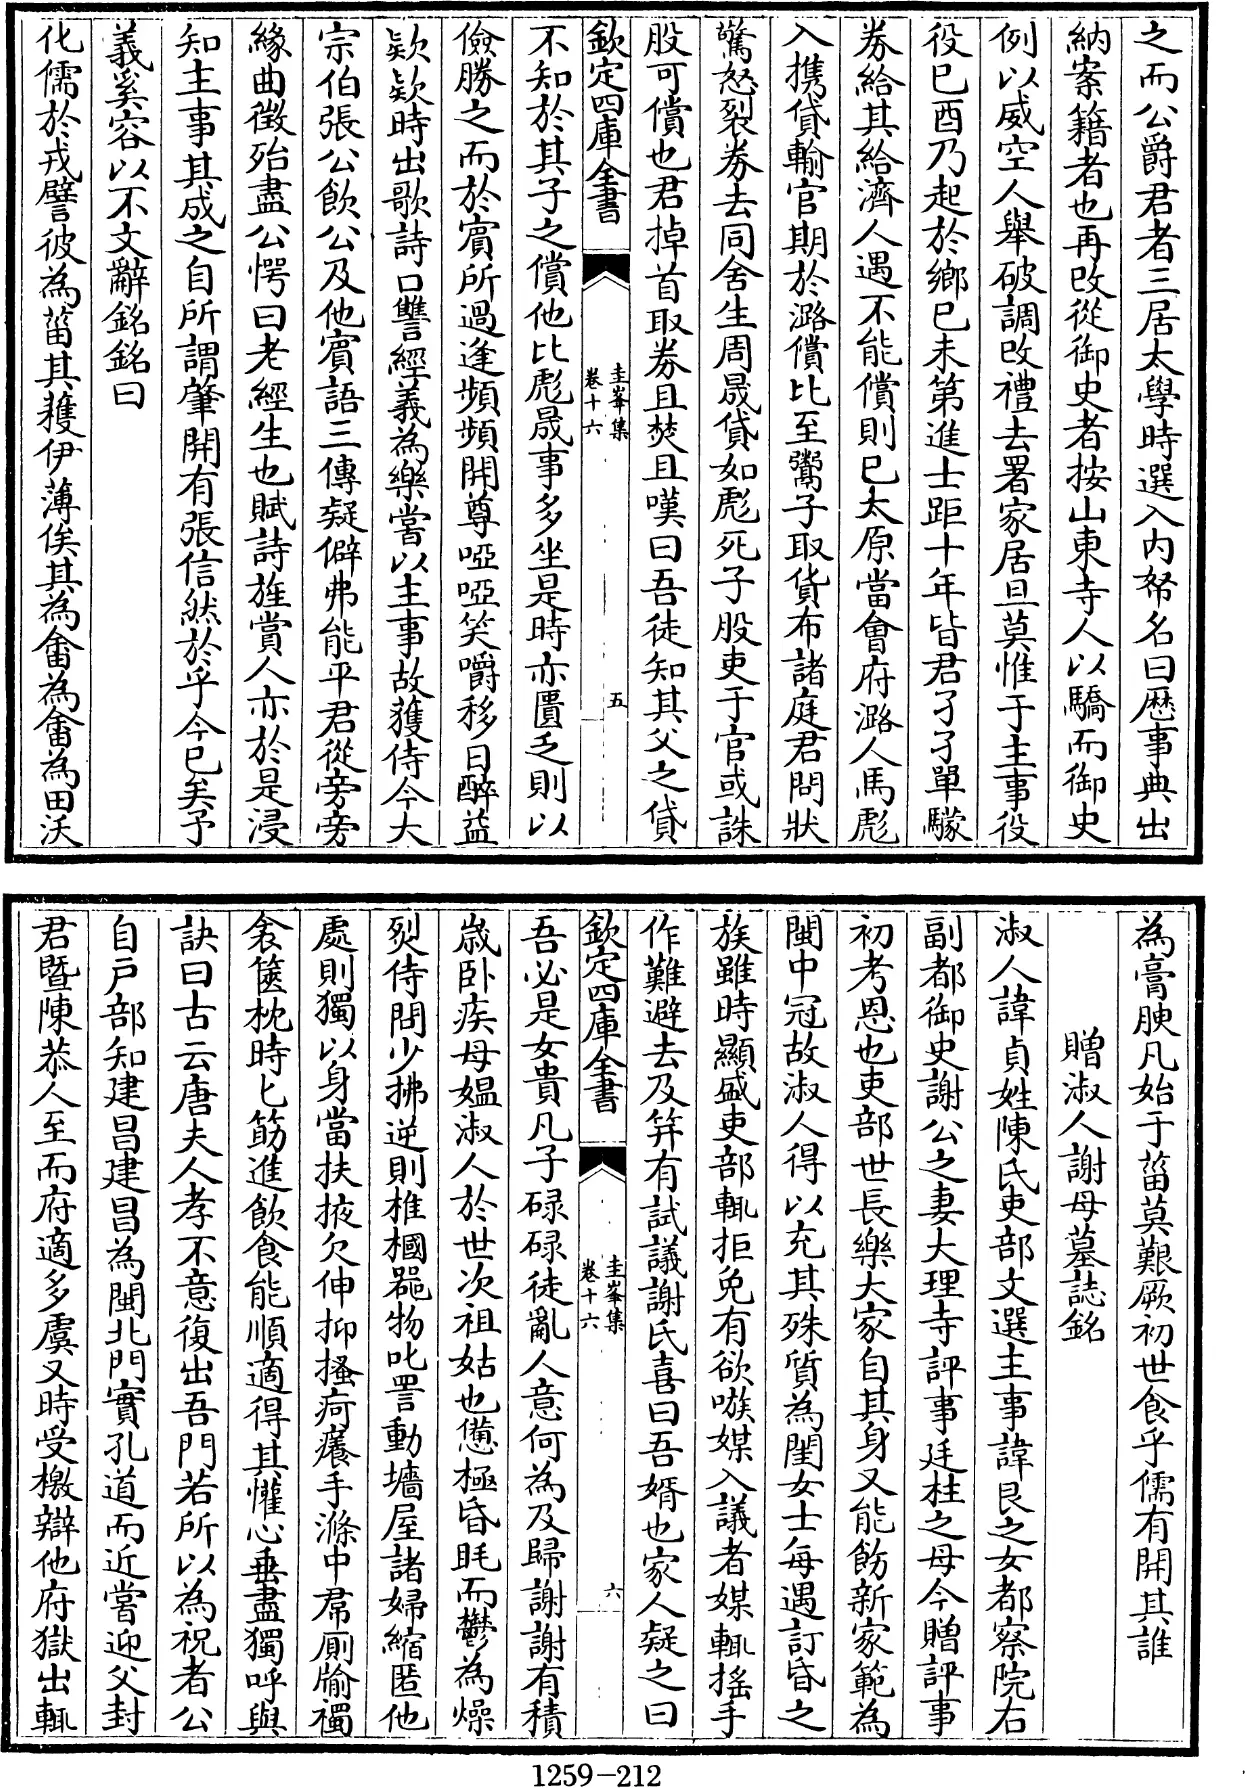 之而公爵君者三居太學時選入内帑名曰歴事典出
納案籍者也再改從御史者按山東寺人以驕而御史
例以威空人舉破調改禮去署家居旦莫惟于主事役
役已酉乃起於鄉已未第進士距十年皆君孑孑單驂
券給其給濟人遇不能償則已太原當會府潞人馬彪
入攜貸輸官期於潞償比至鬻子取貨布諸庭君問狀
驚怒裂券去同舍生周晟貸如彪死子股吏于官或誅
股可償也君掉首取券且焚且嘆曰吾徒知其父之貸
欽定四庫全書
圭峯集
卷十六
五
不知於其子之償他比彪晟事多坐是時亦匱乏則以
儉勝之而於賓所過逢頻頻開尊啞啞笑嚼移日醉益
欵欵時出歌詩口讐經義為樂嘗以主事故獲侍今大
宗伯張公飲公及他賓語三傳疑僻弗能平君從旁旁
緣曲徵殆盡公愕曰老經生也賦詩旌賞人亦於是浸
知主事其成之自所謂肇開有張信然於乎今已矣予
義奚容以不文辭銘銘曰
化儒於戎譬彼為菑其穫伊薄俟其為畬為畬為田沃
為膏腴凡始于菑莫艱厥初世食乎儒有開其誰
贈淑人謝母墓誌銘
淑人諱貞姓陳氏吏部文選主事諱艮之女都察院右
副都御史謝公之妻大理寺評事廷柱之母今贈評事
初考恩也吏部世長樂大家自其身又能飭新家範為
閩中冠故淑人得以充其殊質為閨女士每遇訂昏之
族雖時顯盛吏部輒拒免有欲嗾媒入議者媒輒搖手
作難避去及笄有試議謝氏喜曰吾婿也家人疑之曰
欽定四庫全書
圭峯集
卷十六
六
吾必是女貴凡子碌碌徒亂人意何為及歸謝謝有積
歲卧疾母媪淑人於世次祖姑也憊極昏眊而鬱為燥
烈侍問少拂逆則椎槶器物叱詈動墻屋諸婦縮匿他
處則獨以身當扶掖欠伸抑搔疴癢手滌中帬廁牏襡
衾篋枕時匕筯進飲食能順適得其懽心垂盡獨呼與
訣曰古云唐夫人孝不意復出吾門若所以為祝者公
自戸部知建昌建昌為閩北門實孔道而近嘗迎父封
君暨陳恭人至而府適多虞又時受檄辯他府獄出輒
1259-212